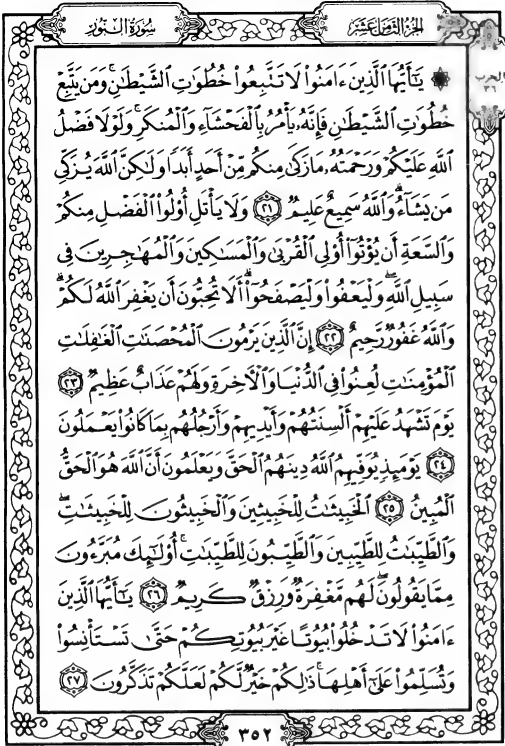 الجزء الثامن عشر
سورة النور
الحزب
٣٦
۞ يَٰٓأَيُّهَا ٱلَّذِينَ ءَامَنُوا۟ لَا تَتَّبِعُوا۟ خُطُوَٰتِ ٱلشَّيْطَٰنِ ۚ وَمَن يَتَّبِعْ
خُطُوَٰتِ ٱلشَّيْطَٰنِ فَإِنَّهُۥ يَأْمُرُ بِٱلْفَحْشَآءِ وَٱلْمُنكَرِ ۚ وَلَوْلَا فَضْلُ
ٱللَّهِ عَلَيْكُمْ وَرَحْمَتُهُۥ مَا زَكَىٰ مِنكُم مِّنْ أَحَدٍ أَبَدًا وَلَٰكِنَّ ٱللَّهَ يُزَكِّى
مَن يَشَآءُ ۗ وَٱللَّهُ سَمِيعٌ عَلِيمٌ ﴿٢١﴾ وَلَا يَأْتَلِ أُو۟لُوا۟ ٱلْفَضْلِ مِنكُمْ
وَٱلسَّعَةِ أَن يُؤْتُوٓا۟ أُو۟لِى ٱلْقُرْبَىٰ وَٱلْمَسَٰكِينَ وَٱلْمُهَٰجِرِينَ فِى
سَبِيلِ ٱللَّهِ ۖ وَلْيَعْفُوا۟ وَلْيَصْفَحُوٓا۟ ۗ أَلَا تُحِبُّونَ أَن يَغْفِرَ ٱللَّهُ لَكُمْ ۗ
وَٱللَّهُ غَفُورٌ رَّحِيمٌ ﴿٢٢﴾ إِنَّ ٱلَّذِينَ يَرْمُونَ ٱلْمُحْصَنَٰتِ ٱلْغَٰفِلَٰتِ
ٱلْمُؤْمِنَٰتِ لُعِنُوا۟ فِى ٱلدُّنْيَا وَٱلْءَاخِرَةِ وَلَهُمْ عَذَابٌ عَظِيمٌ ﴿٢٣﴾
يَوْمَ تَشْهَدُ عَلَيْهِمْ أَلْسِنَتُهُمْ وَأَيْدِيهِمْ وَأَرْجُلُهُم بِمَا كَانُوا۟ يَعْمَلُونَ
﴿٢٤﴾ يَوْمَئِذٍ يُوَفِّيهِمُ ٱللَّهُ دِينَهُمُ ٱلْحَقَّ وَيَعْلَمُونَ أَنَّ ٱللَّهَ هُوَ ٱلْحَقُّ
ٱلْمُبِينُ ﴿٢٥﴾ ٱلْخَبِيثَٰتُ لِلْخَبِيثِينَ وَٱلْخَبِيثُونَ لِلْخَبِيثَٰتِ ۖ
وَٱلطَّيِّبَٰتُ لِلطَّيِّبِينَ وَٱلطَّيِّبُونَ لِلطَّيِّبَٰتِ ۚ أُو۟لَٰٓئِكَ مُبَرَّءُونَ
مِمَّا يَقُولُونَ ۖ لَهُم مَّغْفِرَةٌ وَرِزْقٌ كَرِيمٌ ﴿٢٦﴾ يَٰٓأَيُّهَا ٱلَّذِينَ
ءَامَنُوا۟ لَا تَدْخُلُوا۟ بُيُوتًا غَيْرَ بُيُوتِكُمْ حَتَّىٰ تَسْتَأْنِسُوا۟
وَتُسَلِّمُوا۟ عَلَىٰٓ أَهْلِهَا ۚ ذَٰلِكُمْ خَيْرٌ لَّكُمْ لَعَلَّكُمْ تَذَكَّرُونَ ﴿٢٧﴾
٣٥٢